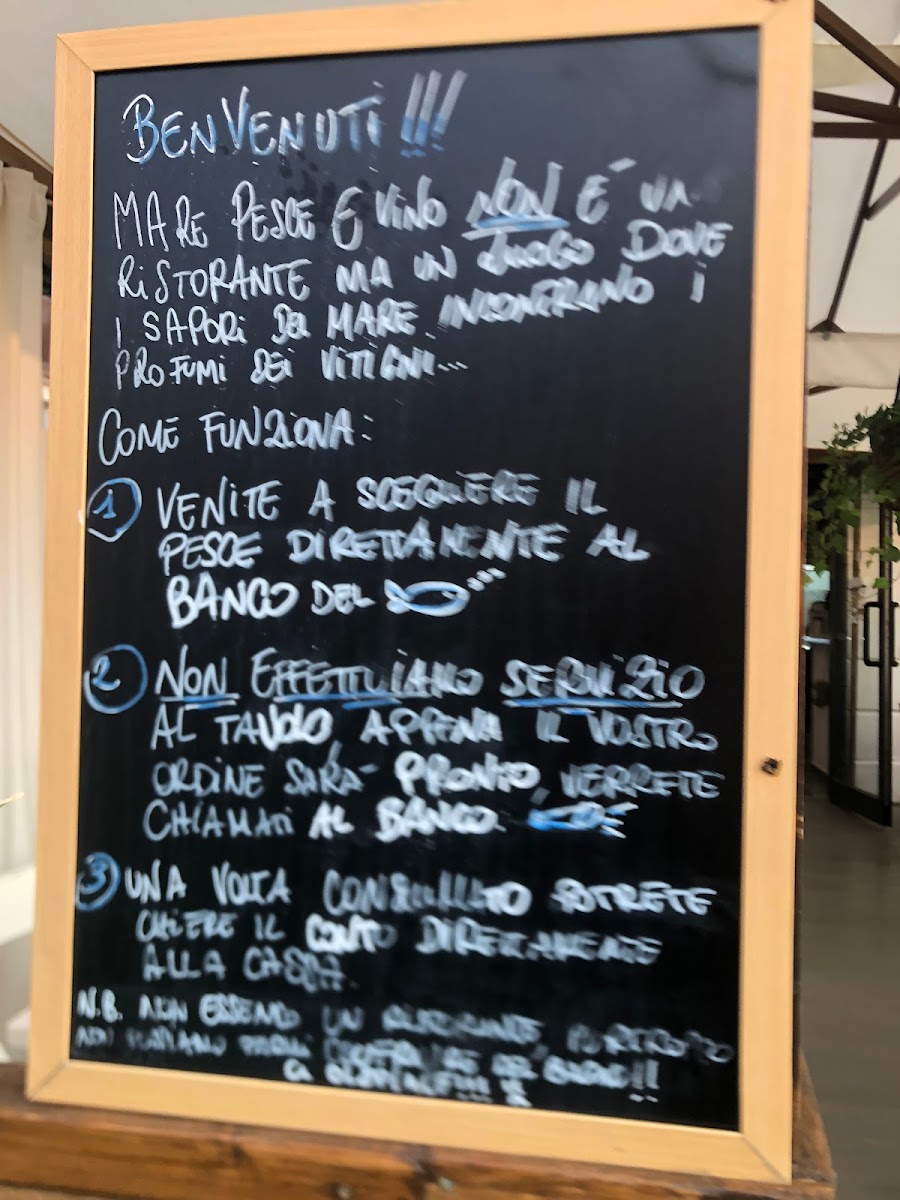 BENVENUTI !!!
MARE PESCE E VINO NON E' UN
RISTORANTE MA UN LUOGO DOVE
I SAPORI DEL MARE INCONTRANO I
PROFUMI DEI VITIGNI...
COME FUNZIONA:
1 VENITE A SCEGLIERE IL
PESCE DIRETTAMENTE AL
BANCO DEL ...
2 NON EFFETTUIAMO SERVIZIO
AL TAVOLO APPENA IL VOSTRO
ORDINE SARA' PRONTO, VERRETE
CHIAMATI AL BANCO.
3 UNA VOLTA CONSUMATO POTRETE
CHIEDERE IL CONTO DIRETTAMENTE
ALLA CASSA.
N.B. NON ESSENDO UN RISTORANTE PURTROPPO
NOI